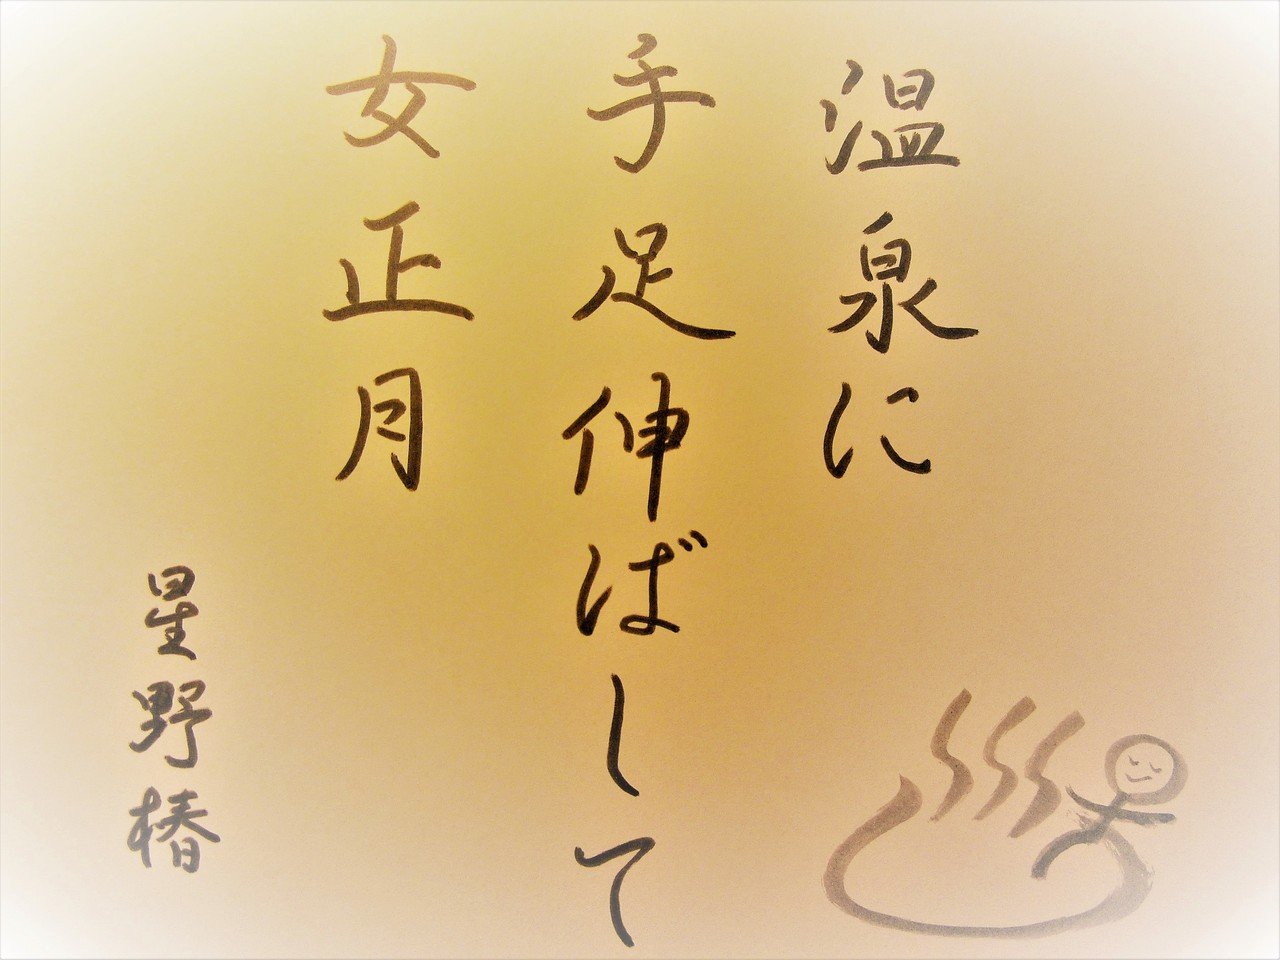 温泉に
手足伸ばして
女正月
星野椿